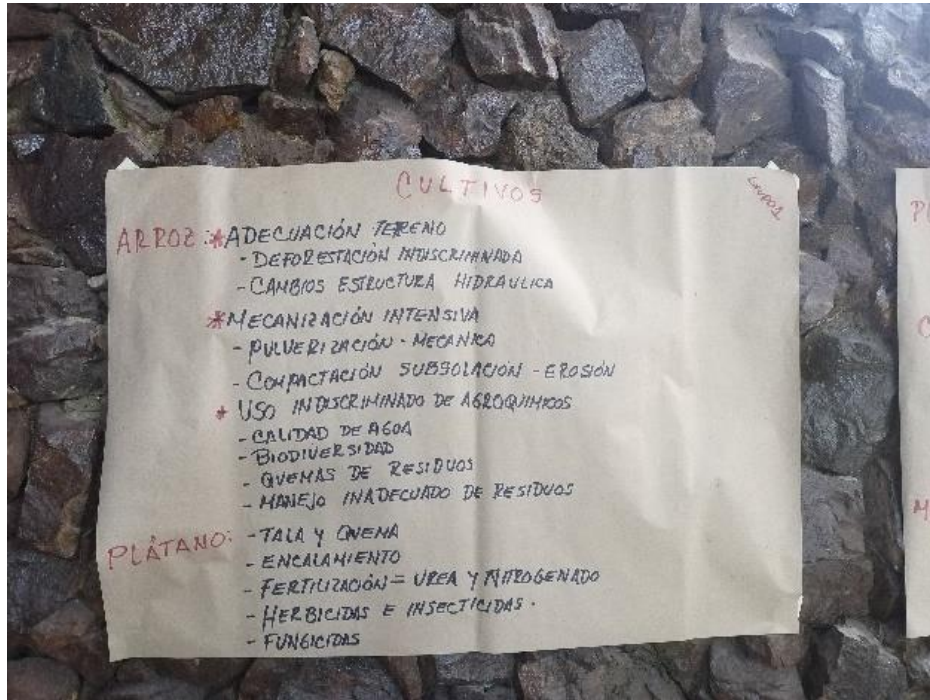 CULTIVOS
GRUPO 1
ARROZ: * ADECUACIÓN TERRENO
- DEFORESTACIÓN INDISCRIMINADA
- CAMBIOS ESTRUCTURA HIDRAULICA
* MECANIZACIÓN INTENSIVA
- PULVERIZACIÓN - MECANICA
- COMPACTACIÓN SUBSOLACIÓN - EROSIÓN
* USO INDISCRIMINADO DE AGROQUIMICOS
- CALIDAD DE AGUA
- BIODIVERSIDAD
- QUEMAS DE RESIDUOS
- MANEJO INADECUADO DE RESIDUOS
PLÁTANO: - TALA Y QUEMA
- ENCALAMIENTO
- FERTILIZACIÓN = UREA Y NITROGENADO
- HERBICIDAS E INSECTICIDAS.
- FUNGICIDAS